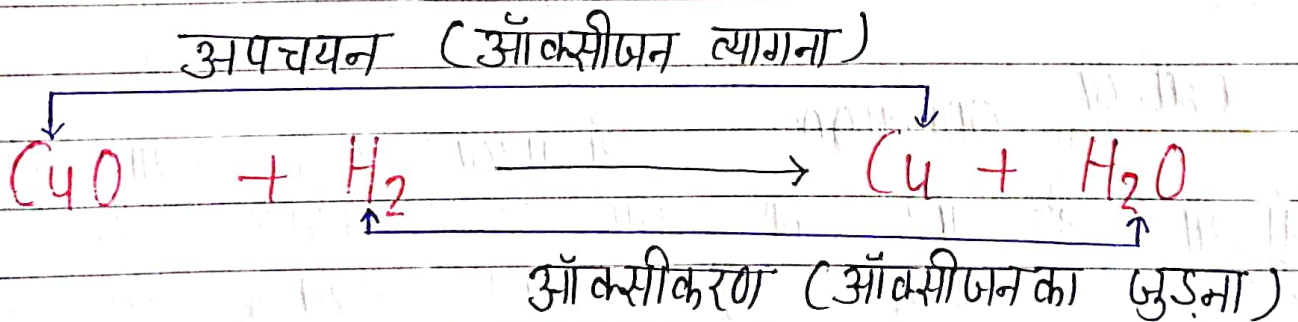 अपचयन (ऑक्सीजन त्यागना)
CuO + H₂ → Cu + H₂O
ऑक्सीकरण (ऑक्सीजन का जुड़ना)